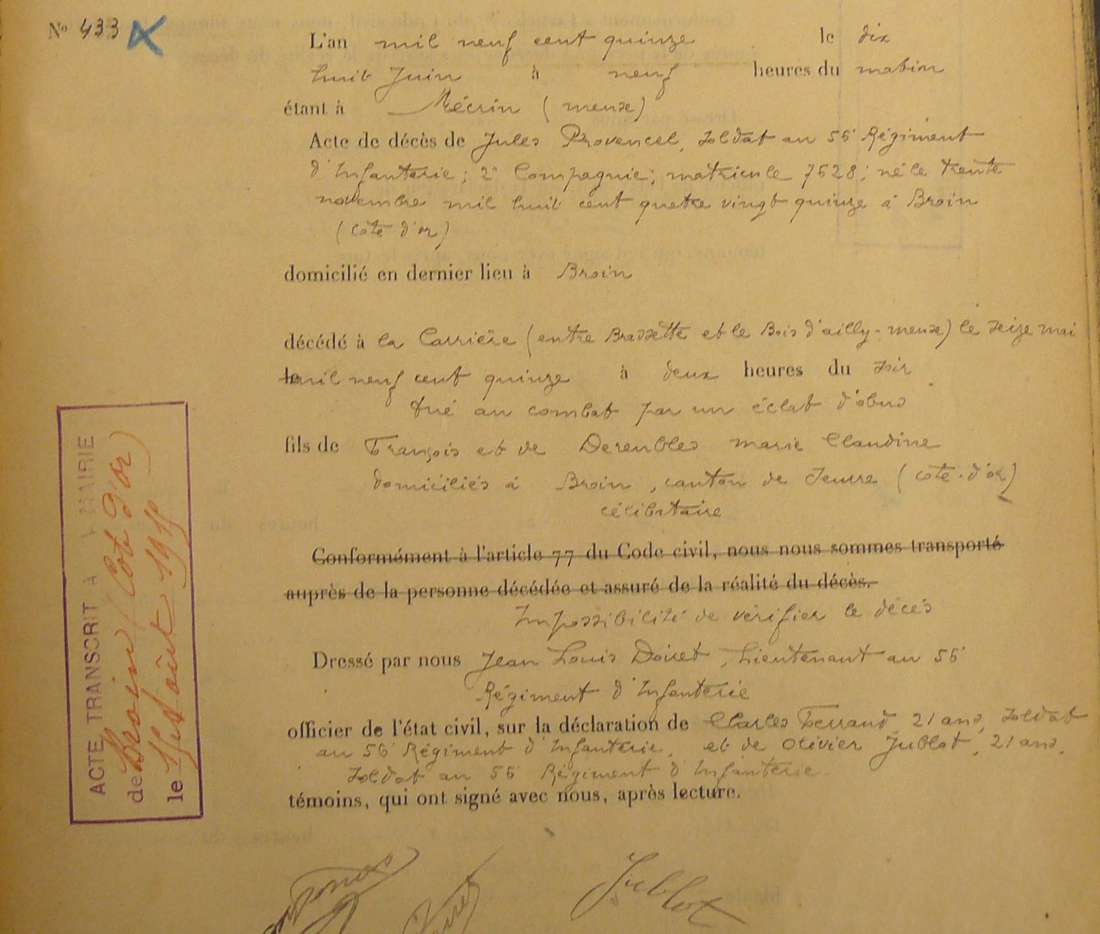 N° 433
L'an mil neuf cent quinze le dix
huit Juin à neuf heures du matin
étant à Mécrin (meuse)
Acte de décès de Jules Provencel, Soldat au 56e Régiment
d'Infanterie; 2e Compagnie; matricule 7628; né le trente
novembre mil huit cent quatre vingt quinze à Broin
(côte d'or)
domicilié en dernier lieu à Broin
décédé à la Carrière (entre Brassette et le Bois d'ailly-meuse) le seize mai
le mil neuf cent quinze à deux heures du soir
tué au combat par un éclat d'obus
fils de François et de Dereubles marie Claudine
domiciliés à Broin, canton de Seurre (côte-d'or)
célibataire
Conformément à l'article 77 du Code civil, nous nous sommes transporté
auprès de la personne décédée et assuré de la réalité du décès.
Impossibilité de vérifier le décès
Dressé par nous Jean Louis Doiret, Lieutenant au 56e
Régiment d'Infanterie
officier de l'état civil, sur la déclaration de Charles Ferrand, 21 ans, soldat
au 56e Régiment d'Infanterie, et de Olivier Jublot, 21 ans,
soldat au 56e Régiment d'Infanterie.
témoins, qui ont signé avec nous, après lecture.
Jublot
ACTE TRANSCRIT À MAIRIE
de Broin (Cote d'or)
le août 1915